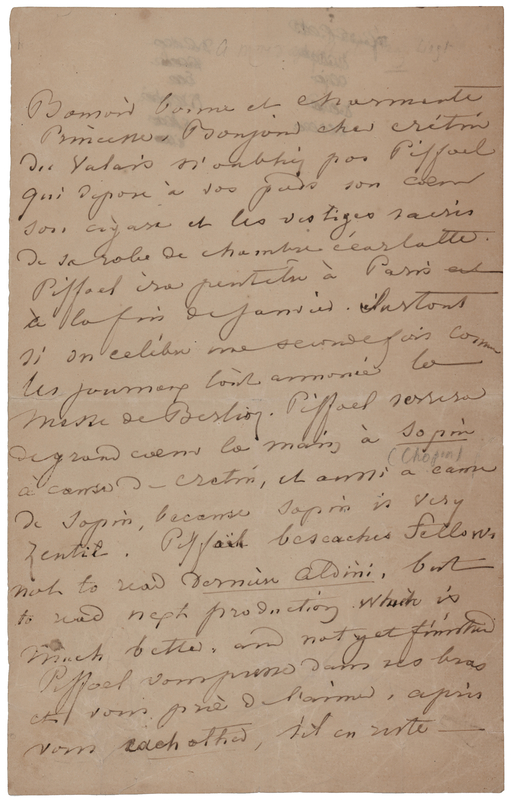 Bonsoir bonne et charmante
Princesse. Bonjour cher crétin
du Valais n'oubliez pas Piffoel
qui dépose à vos pieds son coeur
son cigare et les vestiges sacrés
de sa robe de chambre écarlatte.
Piffoel ira peutêtre à Paris
à la fin de Janvier. Surtout
si on celèbre une seconde fois comme
les journaux l'ont annoncé la
Messe de Berlioz. Piffoel serrera
de grand coeur la main à Sopin
(Chopin)
a cause de cretin, et aussi a cause
de Sopin, because Sopin is very
zentil. Piffoel beseaches fellows
not to read dernière Aldini, but
to read next production which is
much better, and not yet finished
Piffoel vous presse dans ses bras
et vous prie de l'aimer, après
vous each other, s'il en reste